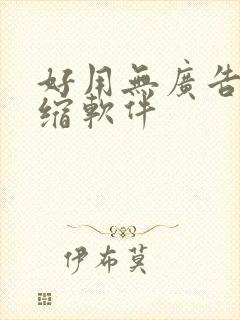 好用無廣告
缩軟件
伊布莫